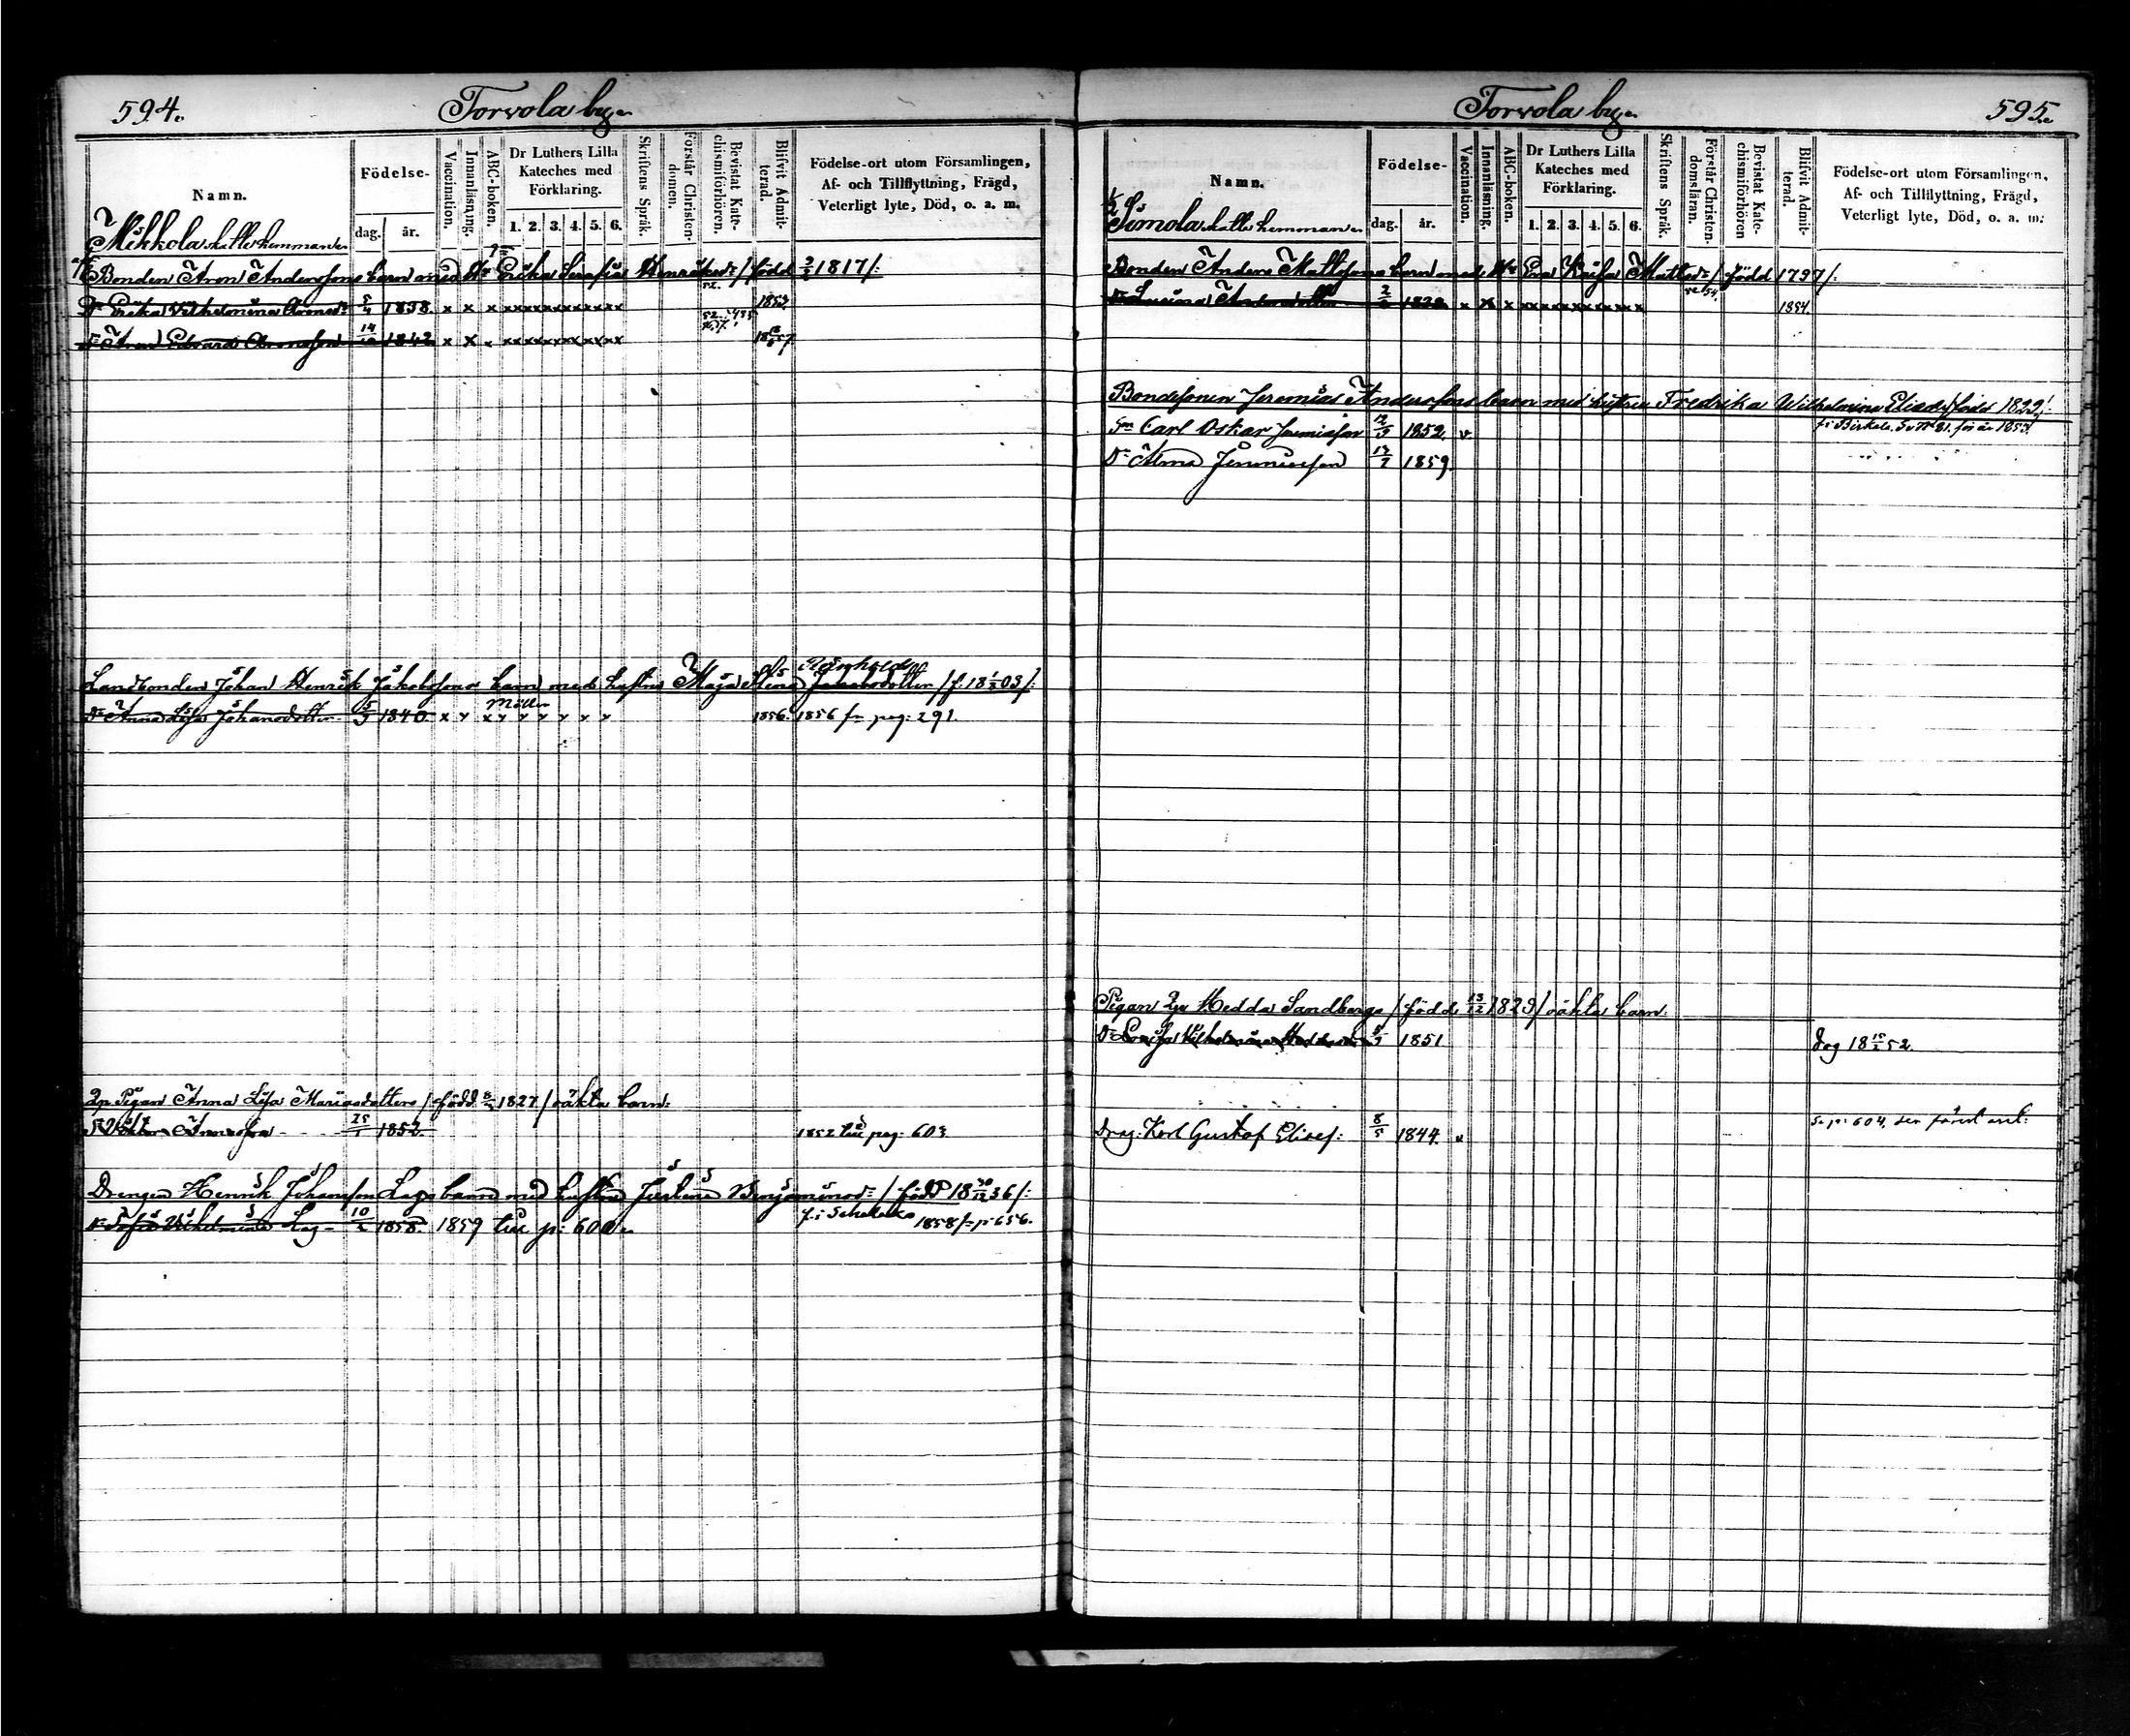 594.
Torvola by
Namn.
Födelse-
dag.
år.
Vaccination.
Innanläsning.
ABC-boken.
Dr Luthers Lilla
Kateches med
Förklaring.
1. 2. 3. 4. 5. 6.
Skriftens Språk.
Förstår Christen-
domen.
Bevistat Kate-
chismiförhören.
Blifvit Admit-
terad.
Födelse-ort utom Församlingen,
Af- och Tillflyttning, Frägd,
Veterligt lyte, Död, o. a. m.
Mikkola skatte hemman
Bonden Aron Anderssons barn med Erika Serafia Henriksd: / född 3/2 1817/:
Dr Erika Vilhelmina Aronsd: 5/4 1838. x x x xxxxxxxxxxxx 1853
Sn Aron Edvard Aronsson 14/10 1842 x x x xxxxxxxxxxxx
Reinholds
Landbonden Johan Henrik Jakobssons barn med hustru Maja Stina Jakobsdotter /f. 18 03/:
Möller
Dr Anna Lisa Johansdotter 5/9 1840 x x x x x x x x x 1856. 1856 fr pag: 291.
Pigan Anna Lisa Mariasdotters / född 1827 / oäkta barn:
25/1 1852. 1852 till pag: 603
Drengen Henrik Johansson Lags barn med hustru Justina Benjaminsd: / född 18 30/12 36/:
Dr Sofia Vilhelmina Lag 10/2 1858. 1859 till p: 600. 1858 fr p: 656.
595.
Torvola by
Namn.
Födelse-
dag.
år.
Vaccination.
Innanläsning.
ABC-boken.
Dr Luthers Lilla
Kateches med
Förklaring.
1. 2. 3. 4. 5. 6.
Skriftens Språk.
Förstår Christen-
domsläran.
Bevistat Kate-
chismiförhören
Blifvit Admit-
terad.
Födelse-ort utom Församlingen,
Af- och Tillflyttning, Frägd,
Veterligt lyte, Död, o. a. m.
1/2 Simola skatte hemman
Bonden Anders Mattssons barn med Eva Kaisa Mattsd: / född 1797/:
x x x xxxxxxxxxxxx 1854.
Bondesonen Jeremias Anderssons barn med hustru Fredrika Wilhelmina Eliaed: född 1822/:
f: i Birkala. för år 1853.
Sn Carl Oskar Jeremiasson 12/9 1852. v
Dr Alma Jeremiasson 1859
Pigan Hedda Sandbergs / född 13/12 1823/ oäkta barn:
Dr Lovisa Vilhelmina 1851 Dog 18 15/2 52.
Dräg: Karl Gustaf Elisef: 8/5 1844. v
Se p: 604.